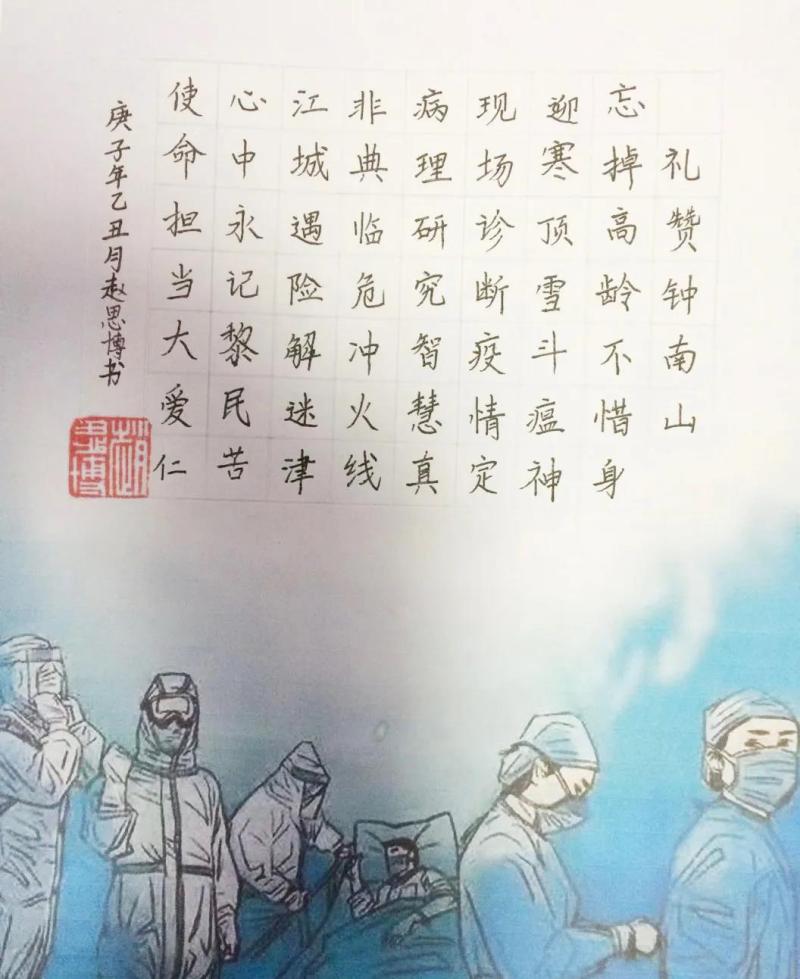 礼赞钟南山
忘掉高龄不惜身
迎寒顶雪斗瘟神
现场诊断疫情定
病理研究智慧真
非典临危冲火线
江城遇险解迷津
心中永记黎民苦
使命担当大爱仁
庚子年乙丑月赵思博书
赵思博